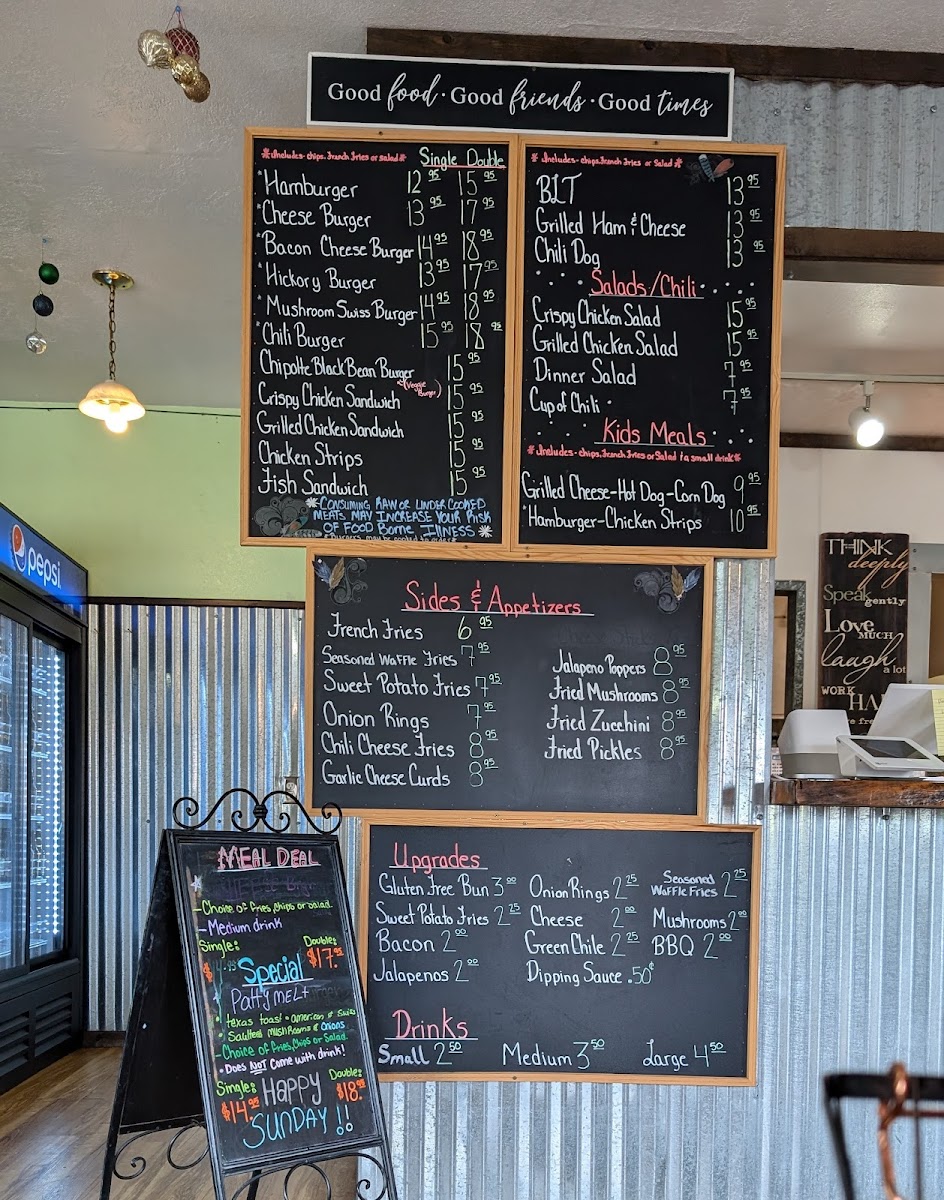 Good food · Good friends · Good times
*Includes - chips, French Fries or Salad*
Single Double
*Hamburger 12.95 15.95
*Cheese Burger 13.95 17.95
*Bacon Cheese Burger 14.95 18.95
*Hickory Burger 13.95 17.95
*Mushroom Swiss Burger 14.95 18.95
*Chili Burger 15.95 18.95
Chipolte Black Bean Burger 15.95
(Veggie Burger)
Crispy Chicken Sandwich 15.95
Grilled Chicken Sandwich 15.95
Chicken Strips 15.95
Fish Sandwich 15.95
*Consuming raw or under cooked
meats may increase your risk
of food borne illness*
*Includes - chips, French Fries or Salad*
BLT 13.95
Grilled Ham & Cheese 13.95
Chili Dog 13.95
Salads/Chili
Crispy Chicken Salad 15.95
Grilled Chicken Salad 15.95
Dinner Salad 7.95
Cup of Chili 7.95
Kids Meals
*Includes - chips, French Fries or Salad & a small drink*
Grilled Cheese-Hot Dog-Corn Dog 9.95
*Hamburger-Chicken Strips 10.95
Sides & Appetizers
French Fries 6.95
Seasoned Waffle Fries 7.95
Sweet Potato Fries 7.95
Onion Rings 7.95
Chili Cheese Fries 8.95
Garlic Cheese Curds 8.95
Jalapeno Poppers 8.95
Fried Mushrooms 8.95
Fried Zucchini 8.95
Fried Pickles 8.95
Upgrades
Gluten Free Bun 3.00
Sweet Potato Fries 2.25
Bacon 2.00
Jalapenos 2.00
Onion Rings 2.25
Cheese 2.00
Green Chile 2.25
Dipping Sauce .50¢
Seasoned
Waffle Fries 2.25
Mushrooms 2.00
BBQ 2.00
Drinks
Small 2.50 Medium 3.50 Large 4.50
MEAL DEAL
-Choice of fries, chips or salad.
-Medium drink
Single: Double:
$17.95
Special
Patty melt
• texas toast • american & swiss
• Sautteed mushrooms & onions
-Choice of fries, chips or Salad.
• Does NOT come with drink!
Single: Double:
$14.95 $18.95
HAPPY
SUNDAY!!
pepsi
THINK
deeply
Speak
gently
Love
MUCH
laugh
a lot
WORK